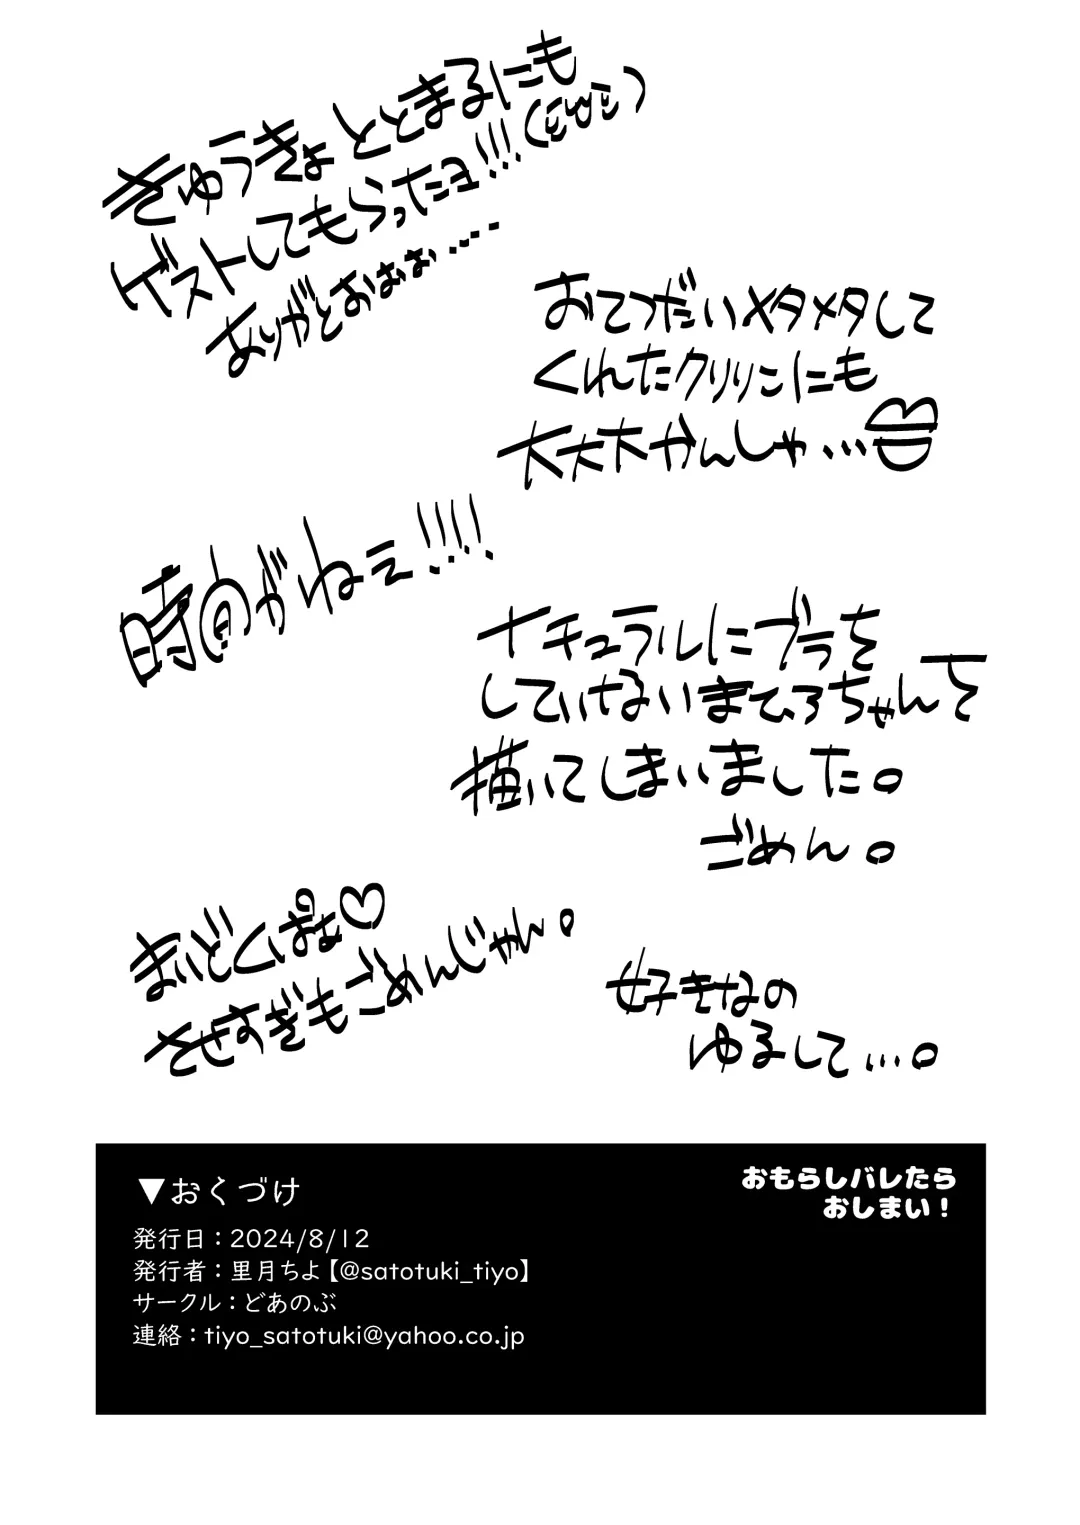 きゅうきょ ととまるにも
ゲストしてもらったョ!!!
ありがとおぉぉ....
おてつだいメタメタして
くれたクリリンにも
大大大かんしゃ...
時間がねェ!!!!
ナチュラルにブラを
していけないまひろちゃんを
描いてしまいました。
ごめん。
まいどくぱぁ♡
させすぎもごめんじゃん。
好きなの
ゆるして...。
▼おくづけ
おもらしバレたら
おしまい!
発行日:2024/8/12
発行者:里月ちよ【@satotuki_tiyo】
サークル:どあのぶ
連絡:tiyo_satotuki@yahoo.co.jp